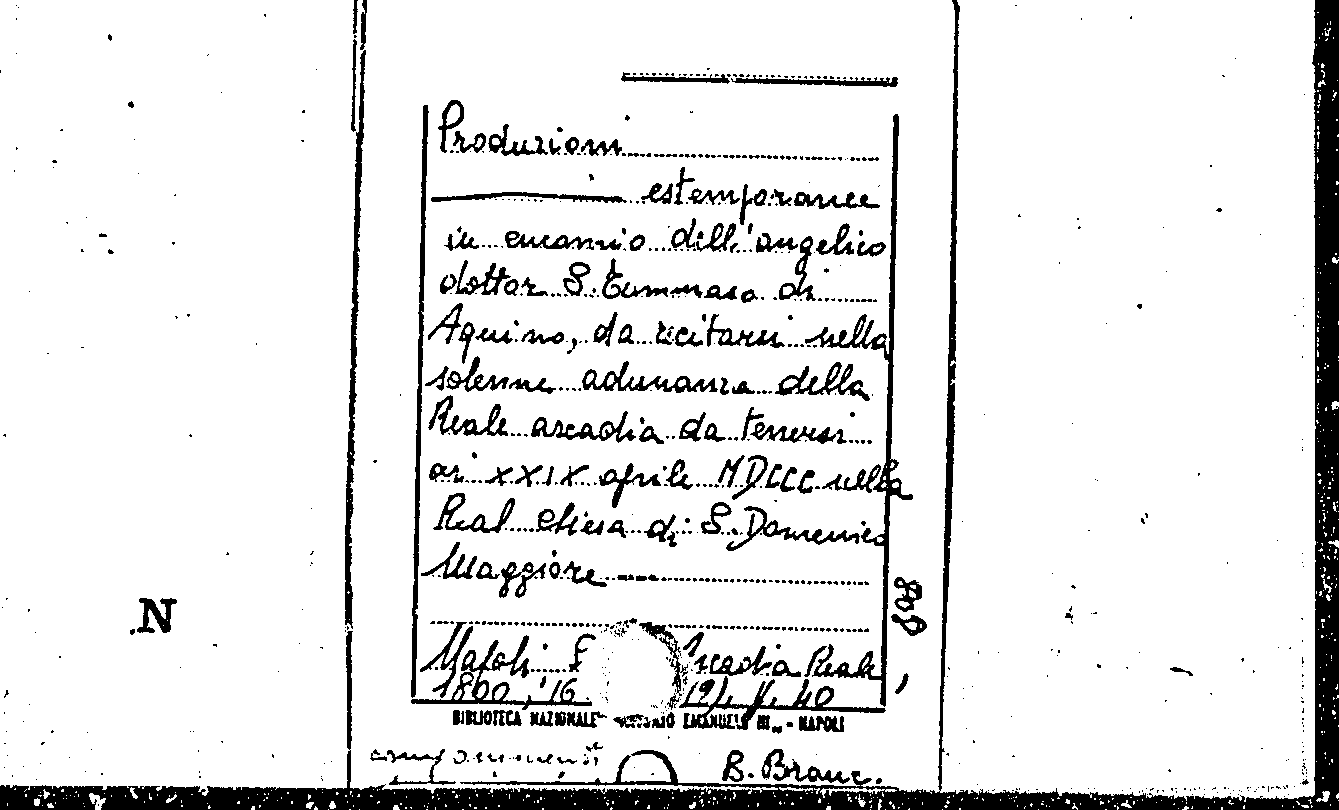 Produzioni
estemporanee
in encomio dell'angelico
dottor S. Tommaso di
Aquino, da recitarsi nella
solenne adunanza della
Reale arcadia da tenersi
ai XXIX aprile MDCCC nella
Real Chiesa di S. Domenico
Maggiore
808
N
Napoli Arcadia Reale,
1800, 16 (2), p. 40
BIBLIOTECA NAZIONALE EMANUELE III„ - NAPOLI
componimenti
B. Branc.